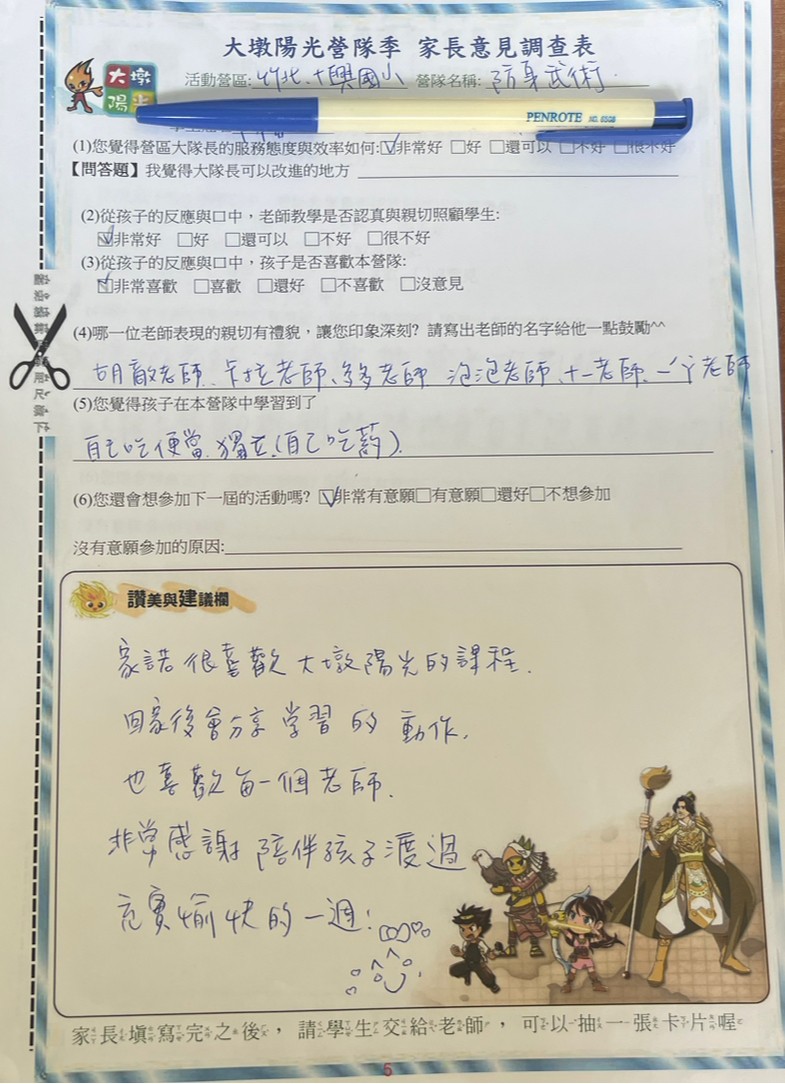 大墩陽光營隊季 家長意見調查表
大墩
陽光
活動營區:竹北、十興國小 營隊名稱:防身武術.
PENROTE NO. 6508
(1)您覺得營區大隊長的服務態度與效率如何:☑非常好 □好 □還可以 □不好 □很不好
【問答題】我覺得大隊長可以改進的地方
(2)從孩子的反應與口中，老師教學是否認真與親切照顧學生:
☑非常好 □好 □還可以 □不好 □很不好
(3)從孩子的反應與口中，孩子是否喜歡本營隊:
☑非常喜歡 □喜歡 □還好 □不喜歡 □沒意見
(4)哪一位老師表現的親切有禮貌，讓您印象深刻? 請寫出老師的名字給他一點鼓勵^^
老師、卡拉老師、多多老師 泡泡老師、十一老師、老師
(5)您覺得孩子在本營隊中學習到了
自己吃便當、獨立(自己吃藥).
(6)您還會想參加下一屆的活動嗎? ☑非常有意願□有意願□還好□不想參加
沒有意願參加的原因:
讚美與建議欄
家諾很喜歡大墩陽光的課程.
回家後會分享学習的動作,
也喜歡每一個老師.
非常感謝陪伴孩子渡過
充實愉快的一週!
家長填寫完之後，請學生交給老師，可以抽一張卡片喔
5